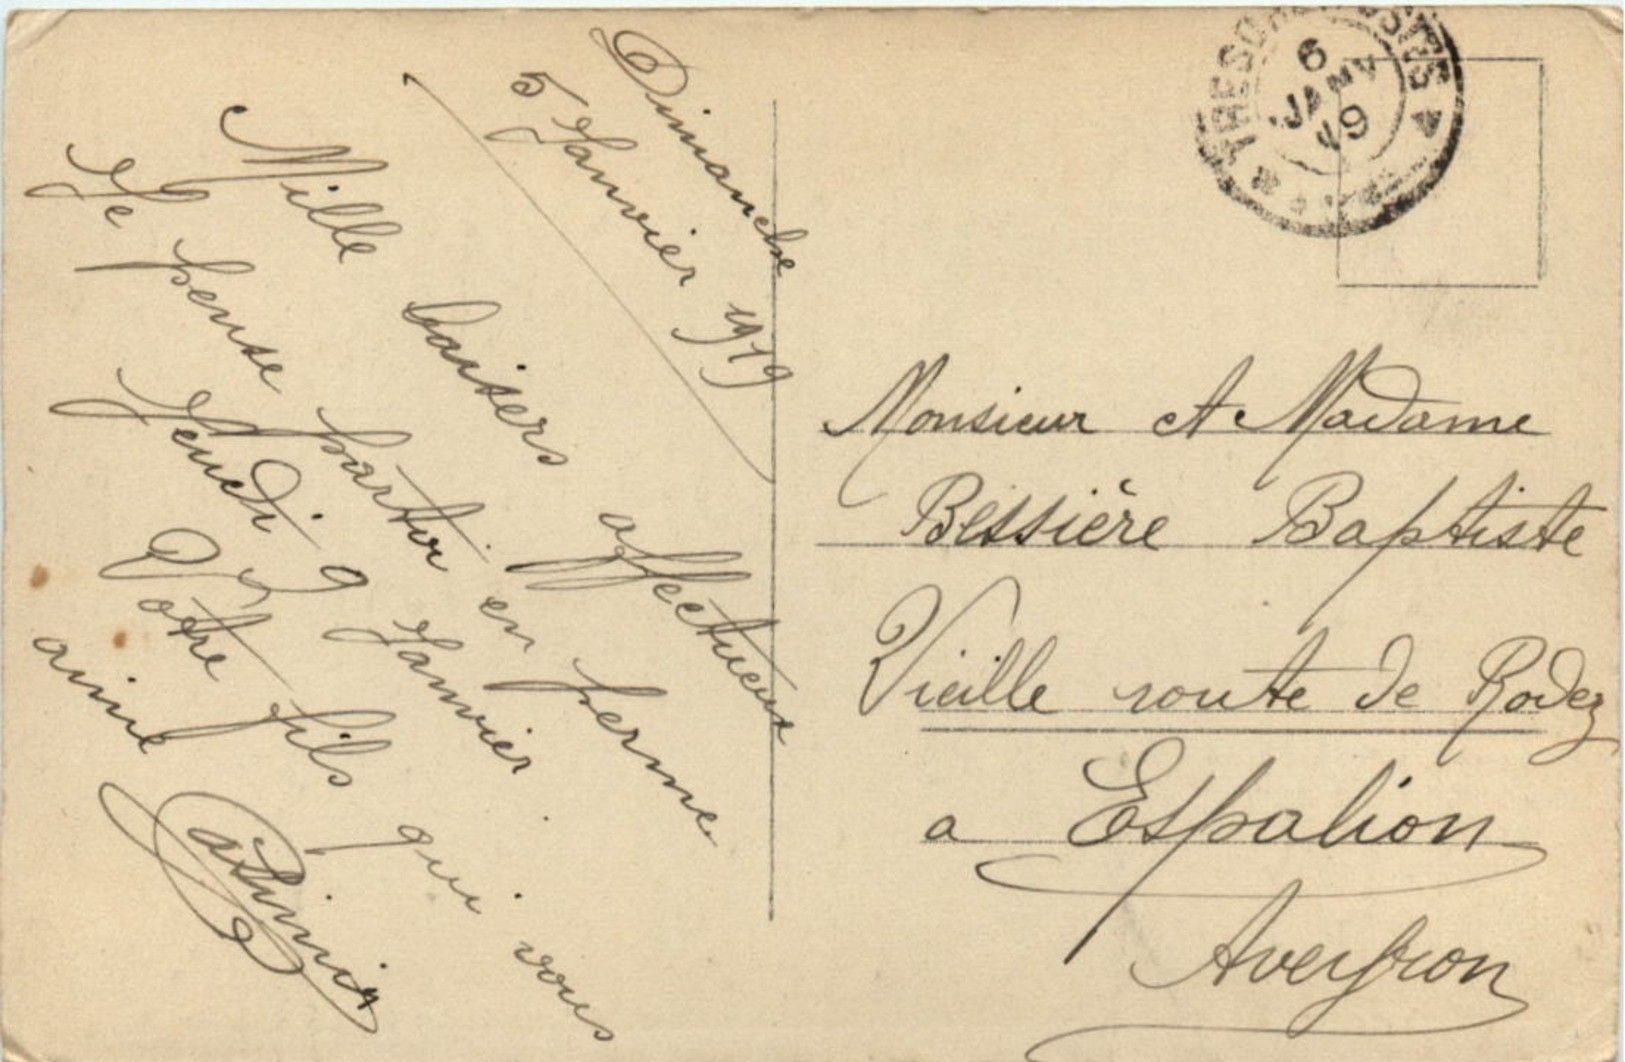 Dimanche
5 Janvier 1919
Mille baisers affectueux
Je pense partir en perme
Jeudi 9 Janvier.
Votre fils qui vous
aime
TRESOR ET POSTES
6
JANV
19
Monsieur et Madame
Bessière Baptiste
Vieille route de Rodez
a Espalion
Aveyron